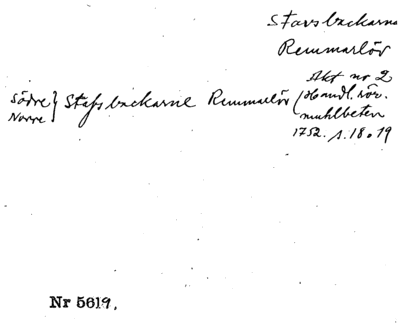 Stavsbackarna
Remmarlöv
Akt nr 2
Södre } Stafsbackarne Remmarlöv (Handl. rör.
Norre
muhlbeten
1752. s. 18 o 19
Nr 5619.